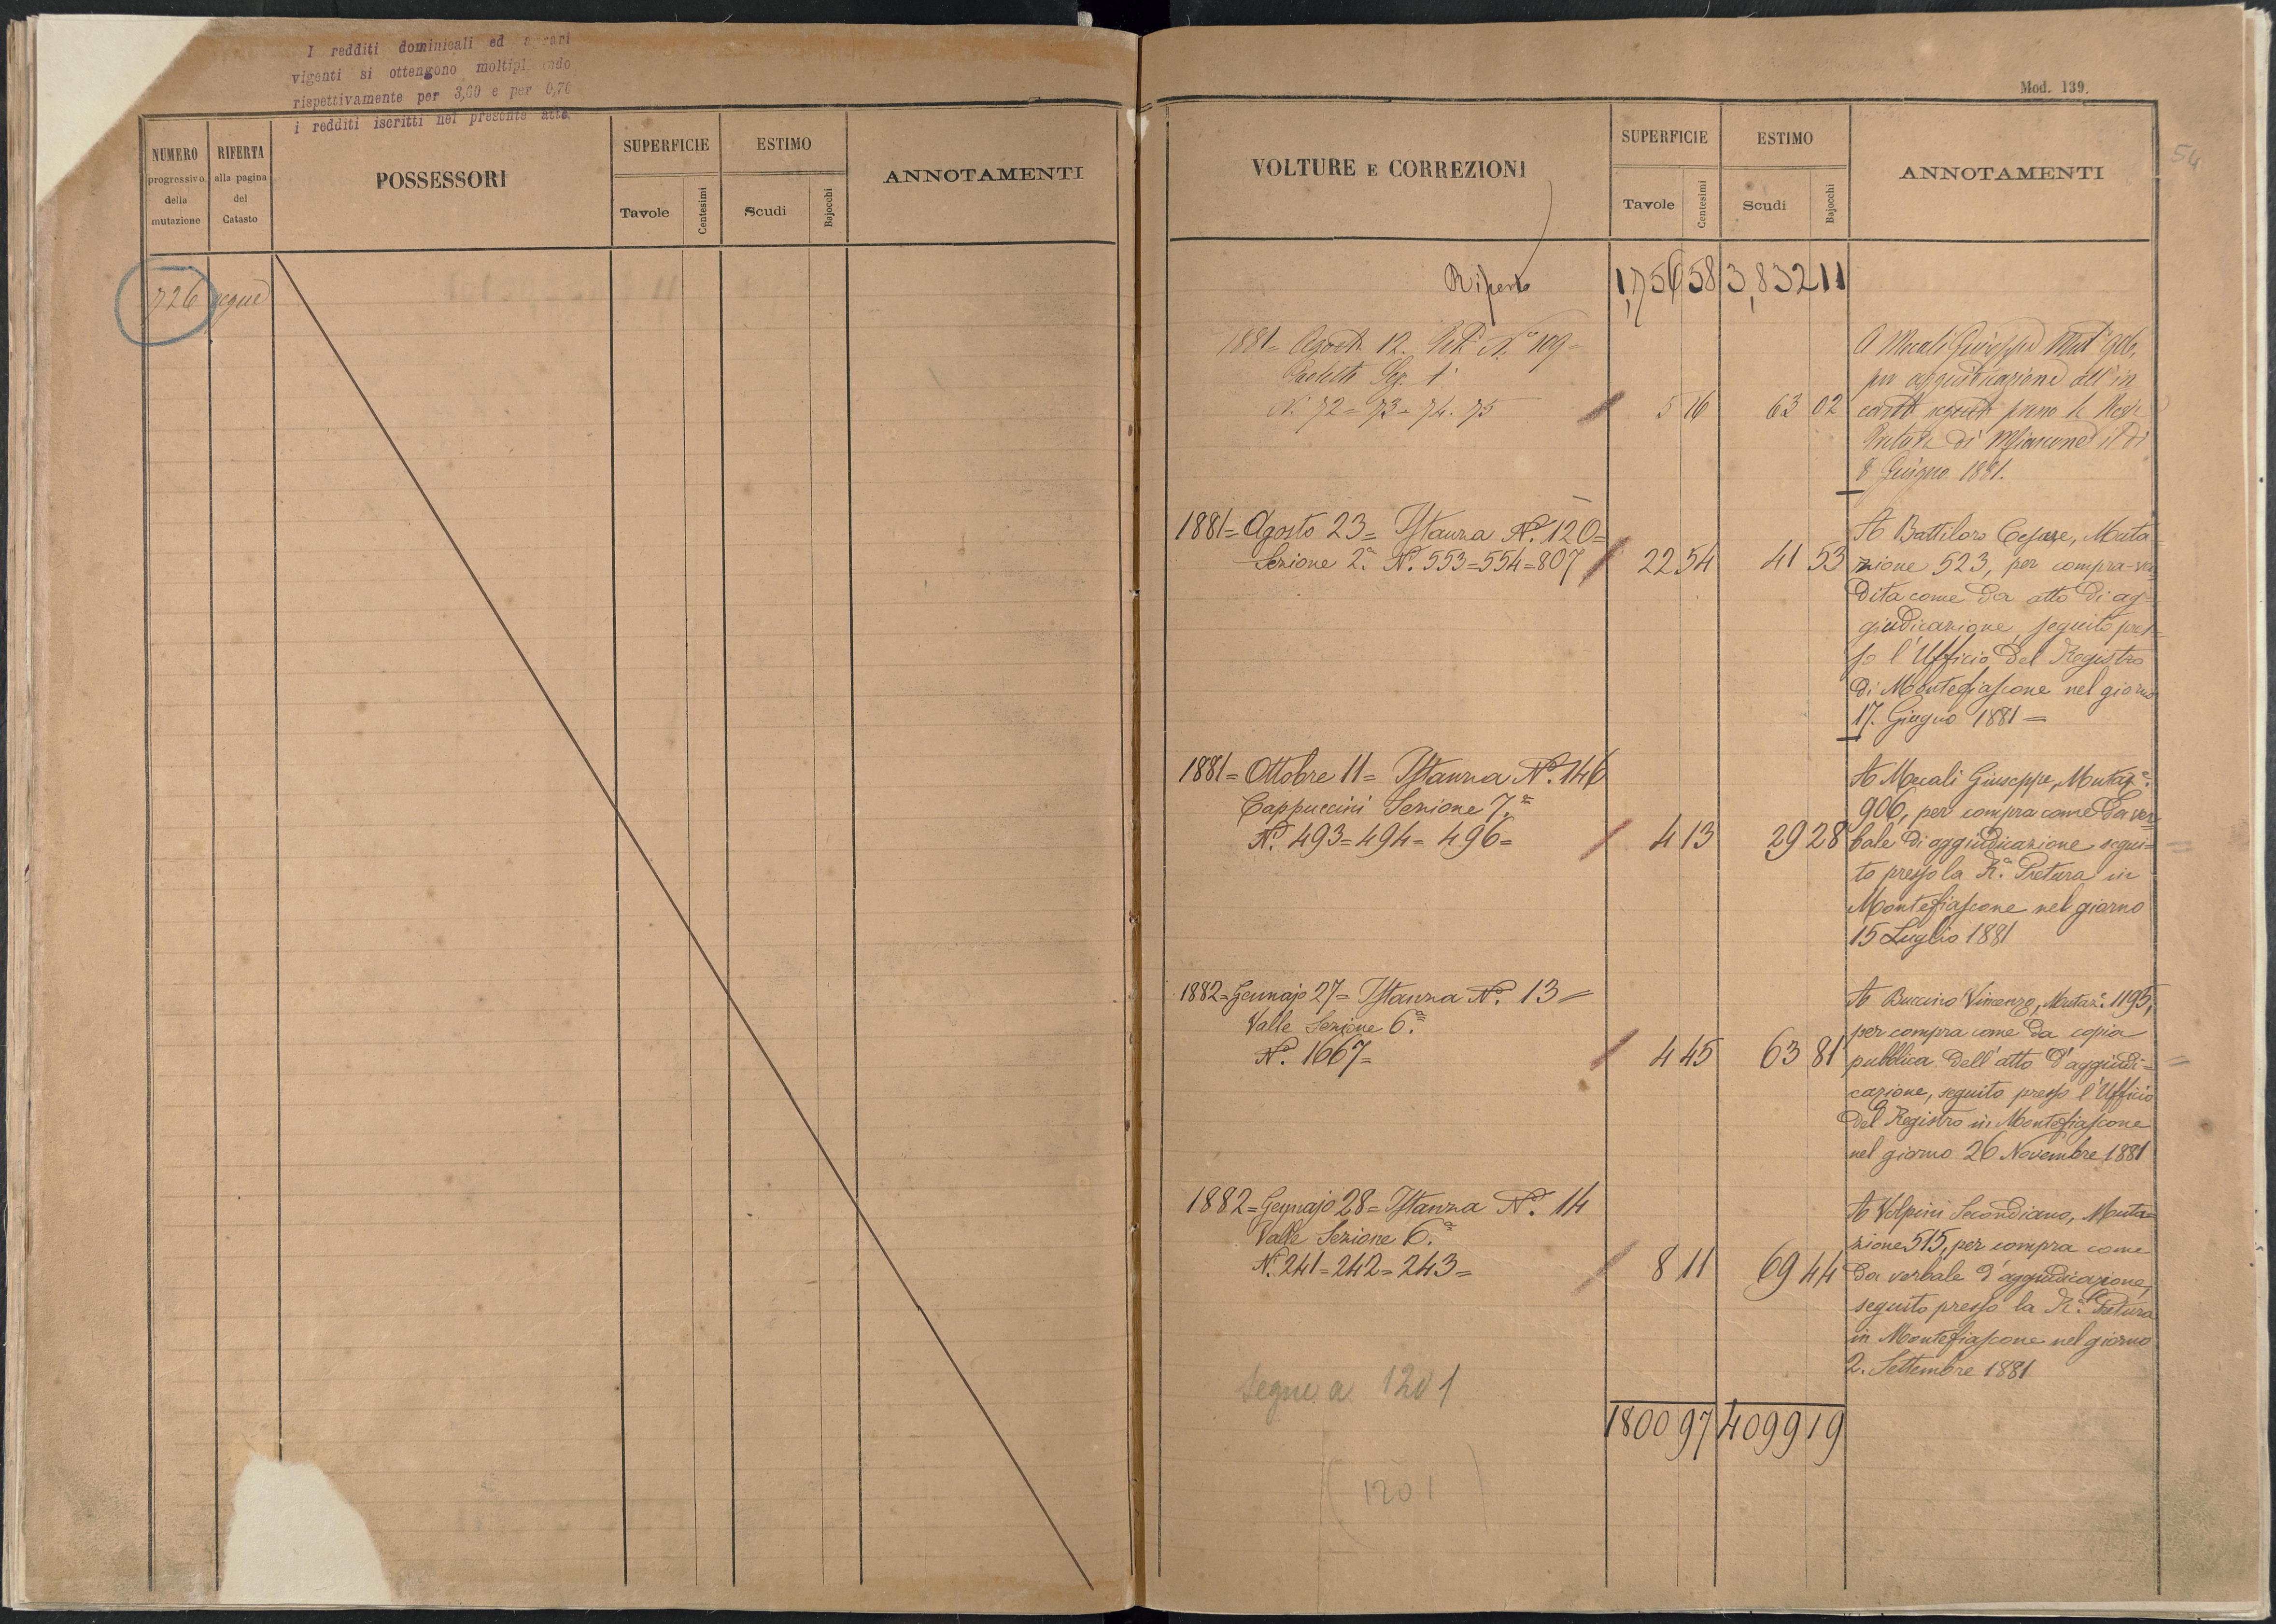 I redditi dominicali ed
vigenti si ottengono
rispettivamente per 3,60 e per 0,70
i redditi iscritti nel presente atto.
NUMERO
progressivo
della
mutazione
RIFERTA
alla pagina
del
Catasto
POSSESSORI
SUPERFICIE
Tavole
Centesimi
ESTIMO
Scudi
Bajocchi
ANNOTAMENTI
726 segue
Mod. 139.
54
VOLTURE E CORREZIONI
SUPERFICIE
Tavole
Centesimi
ESTIMO
Scudi
Bajocchi
ANNOTAMENTI
Riporto 1,756 58 3,832 11
1881= Agosto 12. N.° 109=
Sez. 1ª
N. 72= 73= 74. 75 5 16 63 02
A Mecali Giuseppe
per aggiudicazione
di
8 Giugno 1881.
1881= Agosto 23= Istanza N.° 120=
Sezione 2.ª N. 553=554=807 22 54 41 53
A Battiloro Cesare, Muta=
zione 523, per compra-ven
dita come da atto di ag=
giudicazione, seguito pres=
so l'Ufficio del Registro
di Montefiascone nel giorno
17. Giugno 1881=
1881= Ottobre 11= Istanza N.° 146
Cappuccini Sezione 7.ª
N.° 493=494= 496= 4 13 29 28
A Mecali Giuseppe, Mutaz.e
906, per compra come da ver=
bale di aggiudicazione segui=
to presso la R.ª Pretura in
Montefiascone nel giorno
15 Luglio 1881
1882=Gennajo 27= Istanza N.° 13=
Valle Sezione 6.ª
N.° 1667= 4 45 63 81
A Buccino Vincenzo, Mutaz.e 1195,
per compra come da copia
pubblica dell'atto d'aggiudi=
cazione, seguito presso l'Ufficio
del Registro in Montefiascone
nel giorno 26 Novembre 1881
1882=Gennajo 28= Istanza N.° 14
Valle Sezione 6.ª
N.° 241=242=243= 8 11 69 44
A Volpini Secondiano, Muta=
zione 515, per compra come
da verbale d'aggiudicazione,
seguito presso la R.ª Pretura
in Montefiascone nel giorno
2. Settembre 1881
segue a 1201
1800 97 4099 19
(1201)